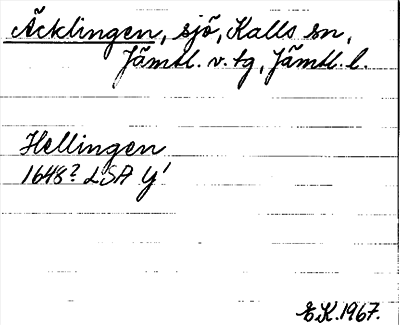 Äcklingen, sjö, Kalls sn,
Jämtl. v. tg, Jämtl. l.
Hellingen
1648? LSA Y'
E.K. 1967.